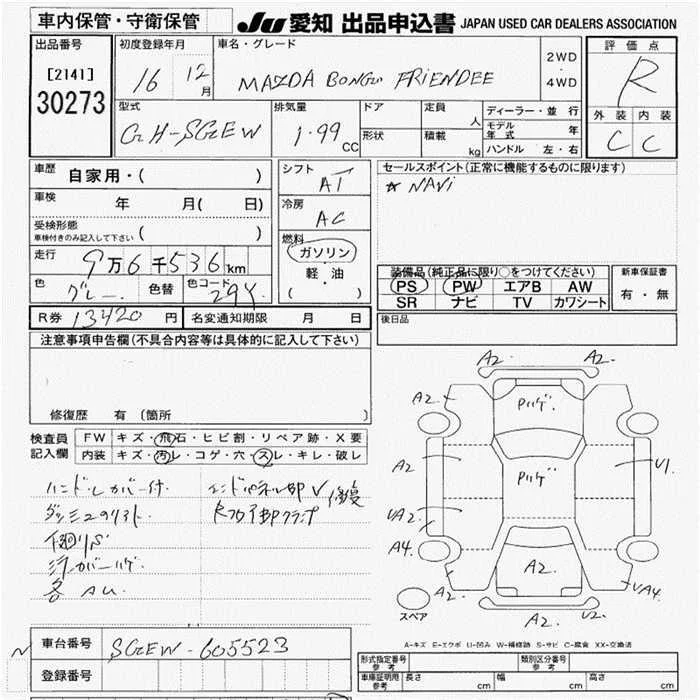 車内保管・守衛保管
JU 愛知 出品申込書 JAPAN USED CAR DEALERS ASSOCIATION
出品番号
[2141]
30273
初度登録年月
16 12月
車名・グレード
MAZDA BONGO FRIENDEE
2WD
4WD
評価点
R
外装 内装
C C
型式
GH-SGEW
排気量
1.99 CC
ドア
形状
定員
人
積載
kg
ディーラー・並行
モデル年式 年
ハンドル 左・右
車歴 自家用・( )
車検 年 月( 日)
受検形態
車検付きのみ記入して下さい ( )
走行 9万6千536km
色 グレー 色替 色コード 29Y
シフト
AT
冷房
AC
燃料
ガソリン
軽・油
( )
セールスポイント(正常に機能するものに限ります)
☆ NAVi
装備品(純正品に限り○をつけてください)
PS PW エアB AW
SR ナビ TV カワシート
新車保証書
有・無
R券 13420 円 名変通知期限 月 日
後日品
注意事項申告欄(不具合内容等は具体的に記入して下さい)
修復歴 有(箇所 )
検査員
記入欄
FW キズ・飛石・ヒビ割・リペア跡・X要
内装 キズ・汚レ・コゲ・穴・スレ・キレ・破レ
ハンドルカバー付
各 AU.
A2. A2.
A2. Pハゲ. A2.
A2 Pハゲ. U1.
UA2.
A4.
A2. A2. UA4.
A2. U2.
スペア
A-キズ E-エクボ U-凹み W-補修跡 S-サビ C-腐食 XX-交換済
車台番号 SGEW-605523
登録番号
形式指定番号
参考
類別区分番号
参考
車庫証明用
参考
長さ cm 幅 cm 高さ cm